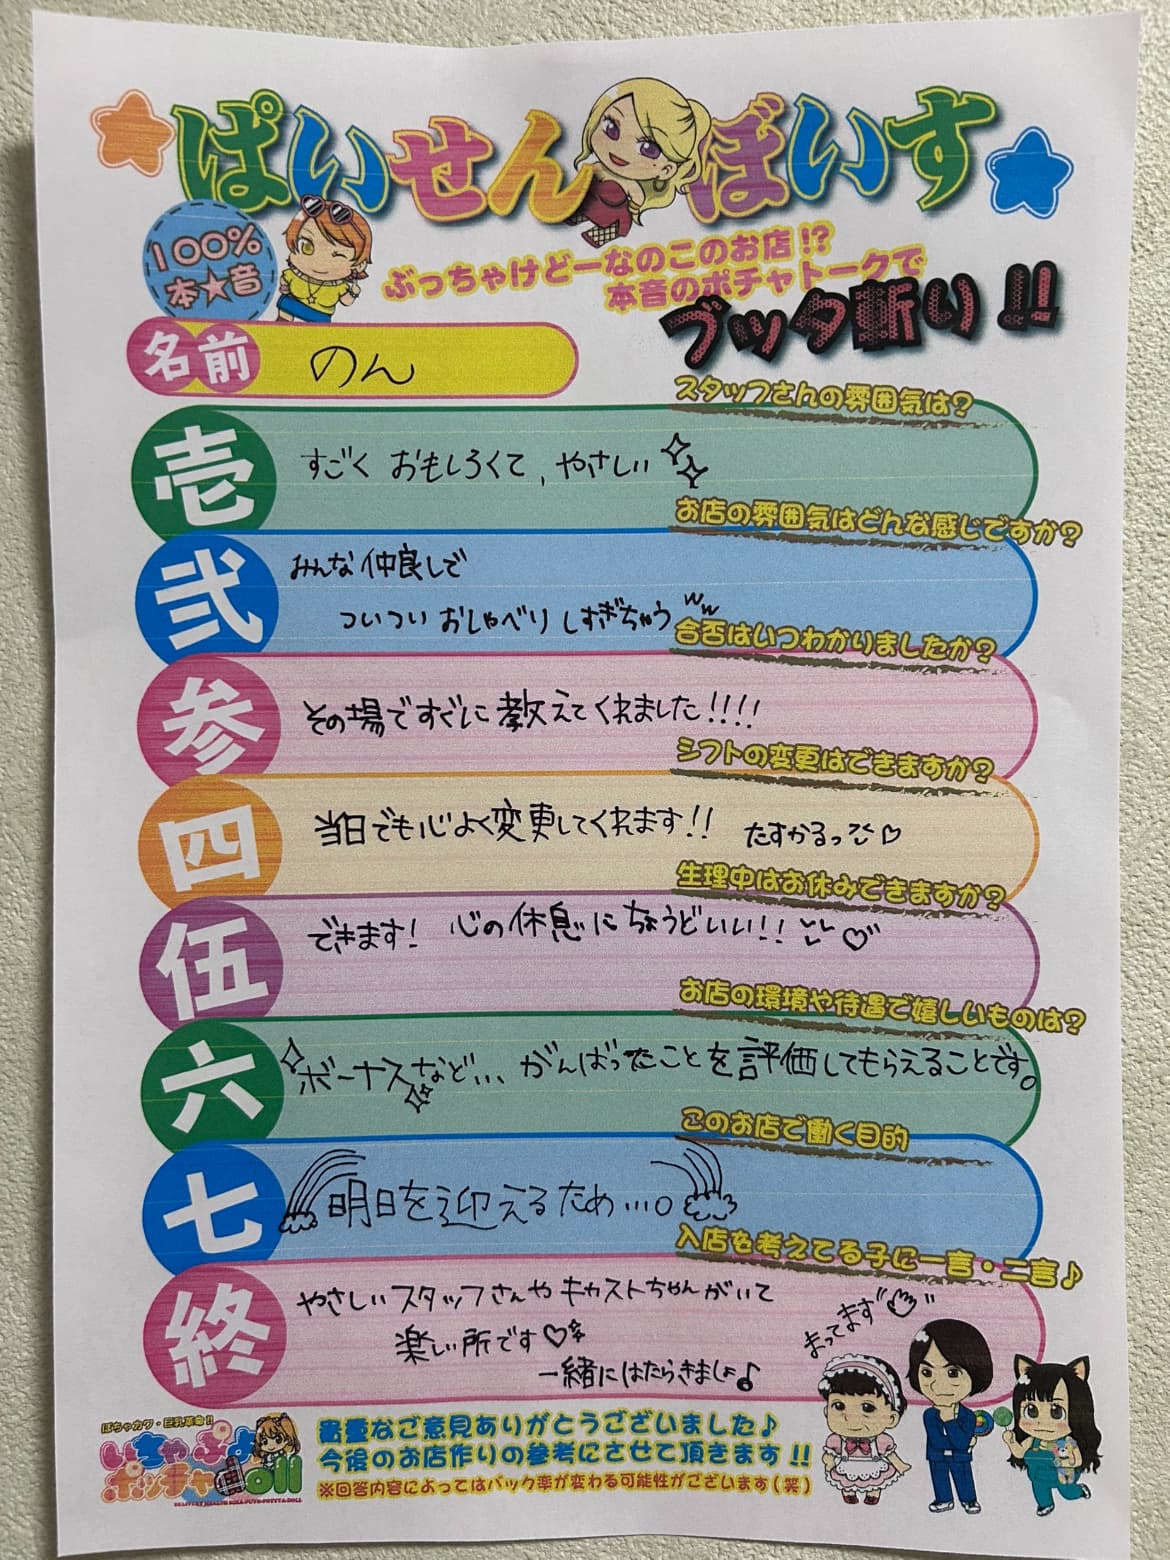 ぱいせんぼいす
100%
本★音
ぶっちゃけどーなのこのお店!?
本音のポチャトークで
ブッタ斬り!!
名前 のん
スタッフさんの雰囲気は?
壱 すごく おもしろくて、やさしい
お店の雰囲気はどんな感じですか?
弐 みんな仲良しで
ついつい おしゃべり しすぎちゃう ww
合否はいつわかりましたか?
参 その場ですぐに教えてくれました!!!!
シフトの変更はできますか?
四 当日でも心よく変更してくれます!! たすかるっ♡
生理中はお休みできますか?
伍 できます! 心の休息にちょうどいい!! ♡
お店の環境や待遇で嬉しいものは?
六 ボーナスなど... がんばったことを評価してもらえることです。
このお店で働く目的
七 明日を迎えるため...。
入店を考えてる子に一言・二言♪
終 やさしいスタッフさんや キャストちゃんがいて
楽しい所です♡
一緒にはたらきましょ♪
まってます"
ぽちゃカワ・巨乳革命!!
いちゃぷよ
ポッチャ
doll
DELIVERY HEALTH ICHA-PUYO-POTTYA-DOLL
貴重なご意見ありがとうございました♪
今後のお店作りの参考にさせて頂きます!!
※回答内容によってはバック率が変わる可能性がございます(笑)